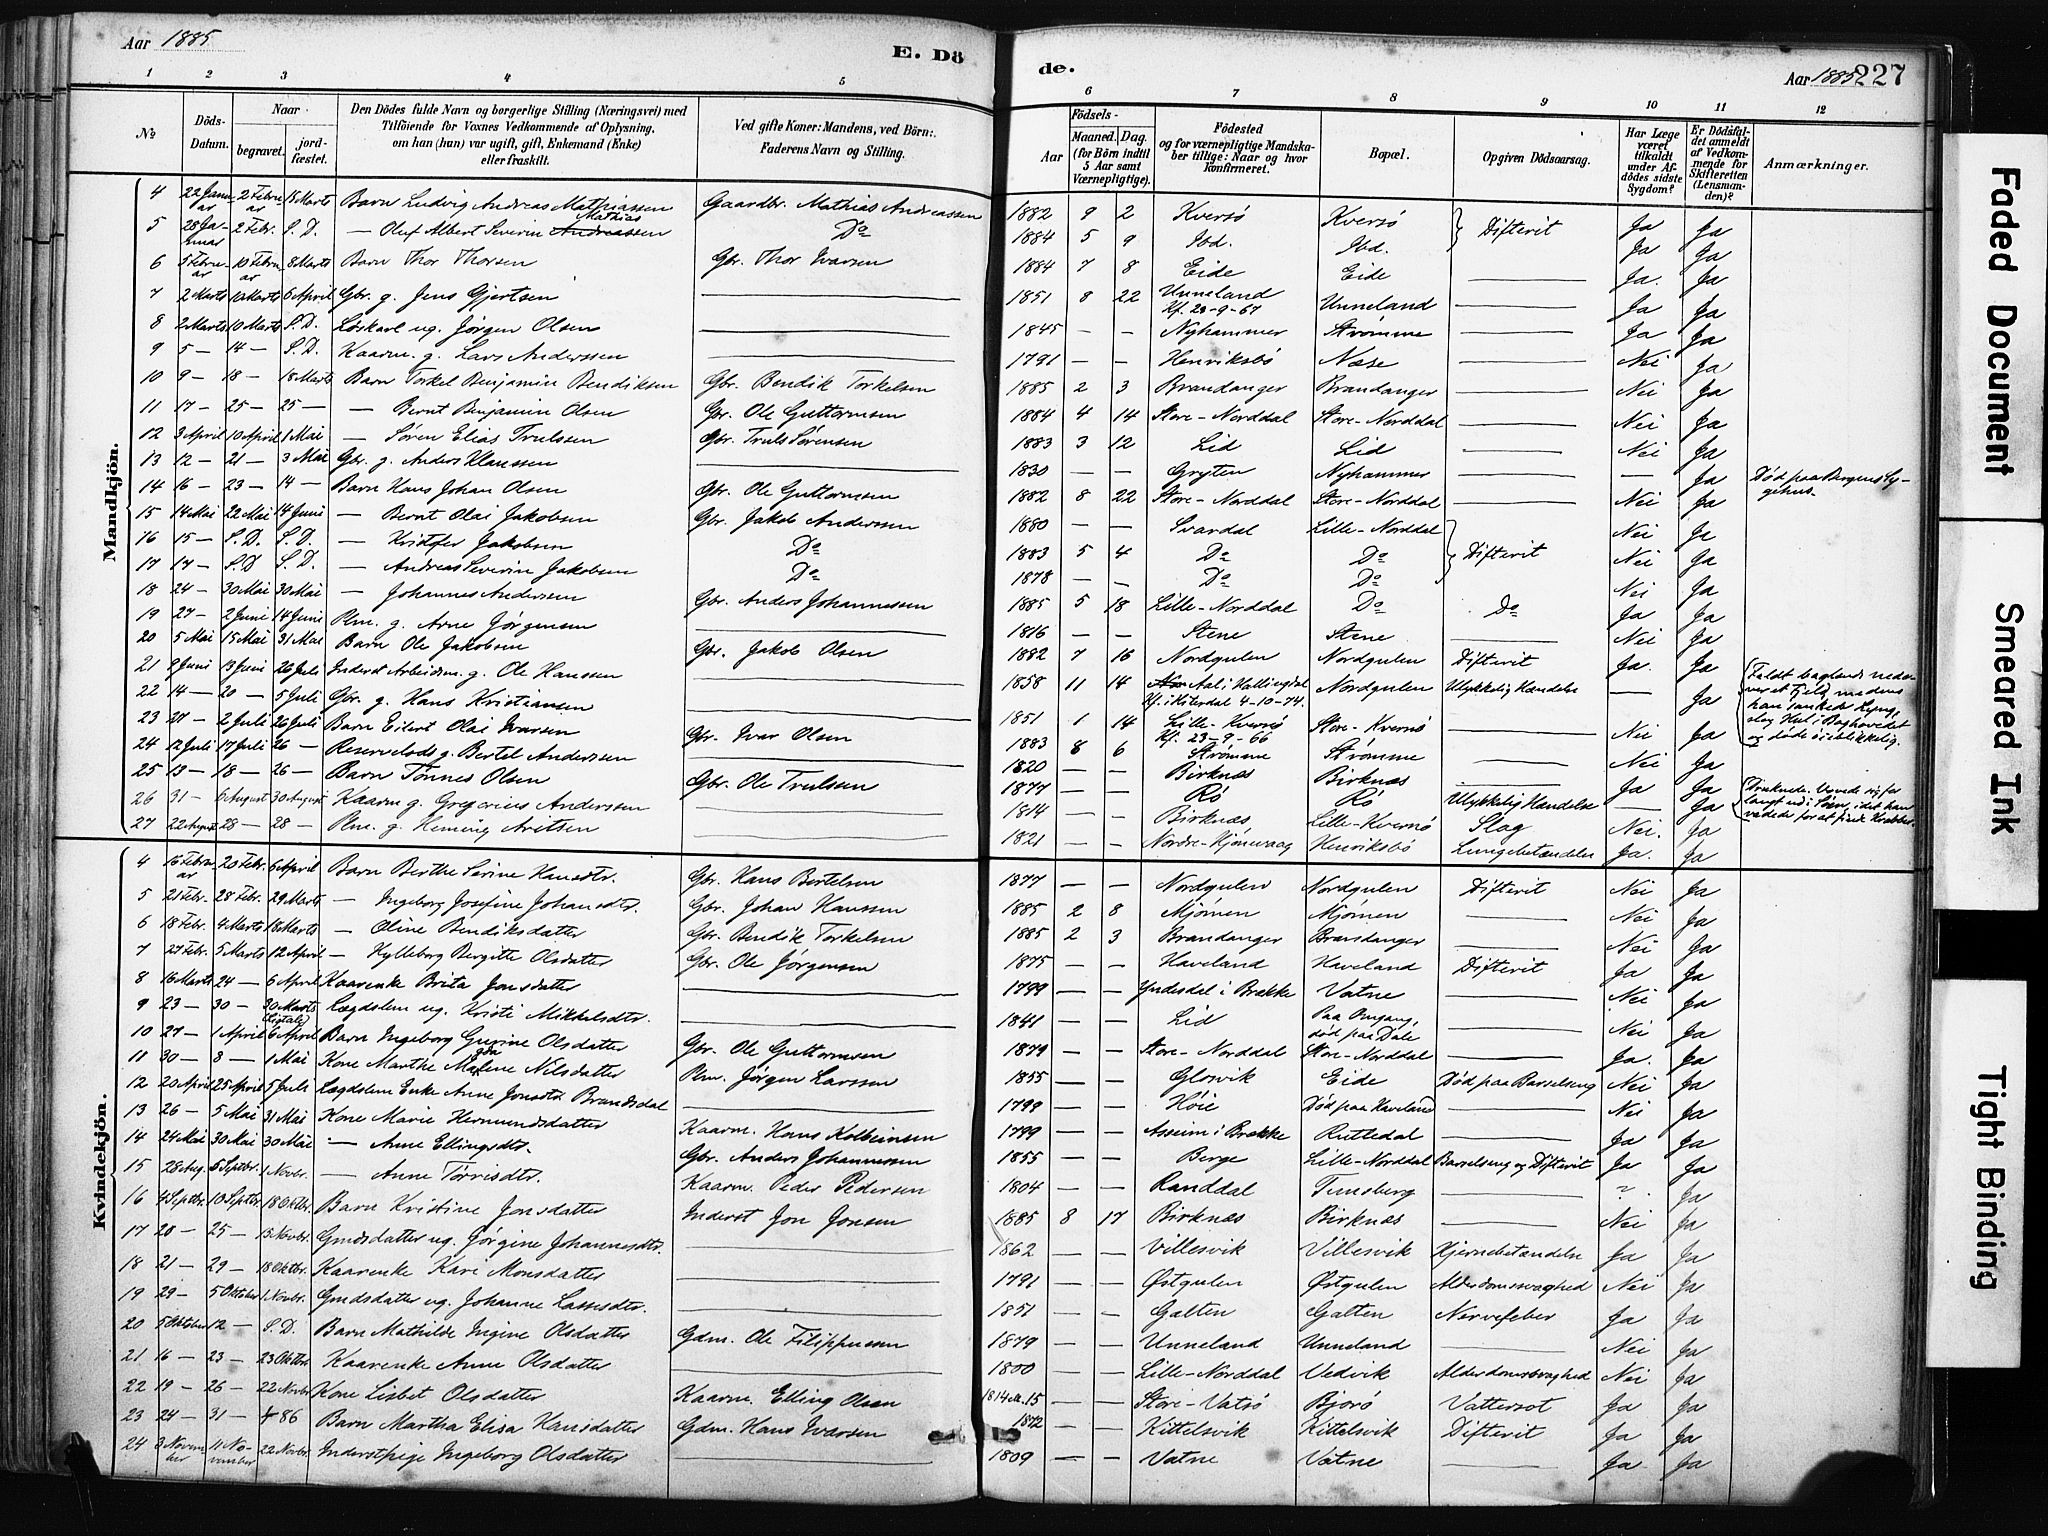 Aar 1885 E. Dö
de. Aar 1885 227
1 2 3 4 5 6 7 8 9 10 11 12
№
Döds-Datum.
Naar
begravet.
jord-fæstet.
Den Dödes fulde Navn og borgerlige Stilling (Næringsvei) med
Tilföiende for Voxnes Vedkommende af Oplysning,
om han (hun) var ugift, gift, Enkemand (Enke)
eller fraskilt.
Ved gifte Koner: Mandens, ved Börn:
Faderens Navn og Stilling.
Födsels-
Aar
Maaned. Dag.
(for Börn indtil
5 Aar samt
Værnepligtige).
Födested
og for værnepligtige Mandska-
ber tillige: Naar og hvor
konfirmeret.
Bopæl.
Opgiven Dödsaarsag.
Har Læge
været
tilkaldt
under Af-
dödes sidste
Sygdom?
Er Dödsfal-
det anmeldt
af Vedkom-
mende for
Skifteretten
(Lensman-
den)?
Anmærkninger.
Mandkjön.
4 22 Januar 2 Februar 15 Marts Barn Ludvig Andreas Mathiassen Gaardbr. Mathias Andreassen 1882 9 2 Kversö Kversö Difterit Ja Ja
5 28 Januar 2 Febr. S. D. — Oluf Albert Severin Mathias Andreassen Do 1884 5 9 Ibd. Ibd. Ja Ja
6 5 Februar 10 Februar 8 Marts Barn Thor Thorsen Gbr. Thor Ivarsen 1884 7 8 Eide Eide — Ja. Ja
7 2 Marts 10 Marts 6 April Gbr. g. Jens Gjertsen — 1851 8 22 Unneland Kf. 29-9-67 Unneland — Ja Ja
8 2 Marts 10 Marts S. D. Löskarl ug. Jörgen Olsen — 1845 — — Nyhammer Strömme — Ja Ja
9 5 — 14 — S. D. Kaarm. g. Lars Anderssen — 1791 — — Henriksbö Næse — Nei Ja
10 9 — 18 — 18 Marts Barn Torkel Benjamin Bendiksen Gbr. Bendik Torkelsen 1885 2 3 Brandanger Brandanger — Nei Ja
11 17 — 25 — 25 — — Bernt Benjamin Olsen Gbr. Ole Guttormsen 1884 4 14 Store-Norddal Store-Norddal — Nei Ja
12 3 April 10 April 1 Mai — Sören Elias Trulssen Gbr. Truls Sörensen 1883 3 12 Lid Lid — Nei Ja
13 12 — 21 — 3 Mai Gbr. g. Anders Klaussen — 1830 — — Gryten Nyhammer — — Ja Död paa Bergens Sy-
gehus.
14 16 — 23 — 14 — Barn Hans Johan Olsen Gbr. Ole Guttormsen 1882 8 22 Store-Norddal Store-Norddal — Nei Ja
15 14 Mai 22 Mai 14 Juni — Bernt Olai Jakobsen Gbr. Jakob Anderssen 1880 — — Svardal Lille-Norddal Difterit Nei Ja
16 15 — S. D. S. D. — Kristofer Jakobsen Do 1883 5 4 Do Do Nei Ja
17 17 — S. D S. D. — Andreas Severin Jakobsen Do 1878 — — Do Do Nei Ja
18 24 — 30 Mai 30 Mai — Johannes Andersen Gbr. Anders Johannessen 1885 5 18 Lille-Norddal Do Do Ja Ja
19 27 — 2 Juni 14 Juni Plm. g. Arne Jörgensen — 1816 — — Stene Stene — Nei Ja
20 5 Mai 15 Mai 31 Mai Barn Ole Jakobsen Gbr. Jakob Olsen 1882 7 16 Nordgulen Nordgulen Difterit Ja. Ja
21 9 Juni 13 Juni 26 Juli Inderst Arbeidsm. g. Ole Hanssen — 1858 11 14 Aal i Hallingdal Kf. i Hiterdal 4-10-74. Nordgulen Ulykkelig Hændelse — Ja Faldt baglands nedo-
ver et Fjeld, medens
han sankede Lyng,
slog Hul i Baghovedet
og döde öieblikkelig.
22 14 — 20 — 5 Juli Gbr. g. Hans Kristiansen — 1851 1 14 Lille-Kversö Kf. 23-9-66 Store-Kversö — Nei Ja
23 27 — 2 Juli 26 Juli Barn Eilert Olai Ivarsen Gbr. Ivar Olsen 1883 8 6 Strömme Strömme — Nei Ja
24 12 Juli 17 Juli 26 — Reservelods g. Bertel Anderssen — 1820 — — Birknæs Birknæs — Ja Ja
25 13 — 18 — 26 — Barn Tönnes Olsen Gbr. Ole Trulsen 1877 — — Rö Rö Ulykkelig Hændelse — Ja Druknede. Vovede sig for
langt ud i Söen, idet han
vadede for at finde Krabber.
26 31 — 6 August 30 August Kaarm g. Gregorius Anderssen — 1814 — — Birknæs Lille-Kversö Slag Nei. Ja
27 22 August 28 — 28 — Plm. g. Heming Aritsen — 1821 — — Nordre-Hjönevaag Henriksbö Lungebetændelse Ja. Ja
Kvindekjön.
4 16 Februar 20 Febr. 6 April Barn Berthe Serine Hansdtr. Gbr. Hans Bertelsen 1877 — — Nordgulen Nordgulen Difterit Nei Ja
5 21 Febr. 28 Febr. 29 Marts — Ingeborg Josefine Johansdtr. Gbr. Johan Hanssen 1885 2 8 Mjömen Mjömen — Nei Ja
6 18 Febr. 4 Marts 18 Marts — Oline Bendiksdatter Gbr. Bendik Torkelsen 1885 2 3 Brandanger Brandanger — Nei Ja
7 27 Febr. 5 Marts 12 April — Hylleborg Bergitte Olsdatter Gbr. Ole Jörgensen 1875 — — Haveland Haveland Difterit Ja Ja
8 16 Marts 24 — 6 April Kaarenke Brita Jonsdatter — 1799 — — Yndesdal i Brække Vatne — Nei Ja
9 23 — 30 — 30 Marts (Ligtale) Lægdslem ug. Kristi Mikkelsdtr. — 1841 — — Lid Paa Omgang, död paa Dale — Nei Ja
10 27 — 1 April 6 April Barn Ingeborg Gurine Olsdatter Gbr. Ole Guttormsen 1879 — — Store-Norddal Store-Norddal — Ja. Ja
11 30 — 3 — 1 Mai Kone Marthe Malene Nilsdatter Plm. Jörgen Larssen 1855 — — Glosvik Eide Död paa Barselseng Nei Ja
12 20 April 25 April 5 Juli Lægdslem Enke Anne Jonsdtr Brandsdal — 1799 — — Höie Död paa Haveland — Nei Ja
13 26 — 5 Mai 31 Mai Kone Marie Hermundsdatter Kaarm. Hans Kolbeinsen 1799 — — Asseim i Brække Rutledal — Ja Ja
14 24 Mai 30 Mai 30 Mai — Anne Ellingsdtr. Gbr. Anders Johannessen 1855 — — Berge Lille-Norddal Barselseng og Difterit Ja Ja
15 28 Aug. 5 Septbr. 1 Novbr. — Anne Törrisdtr. Kaarm. Peder Pedersen 1804 — — Randdal Tunsberg — ? Ja
16 4 Septbr. 10 Septbr. 18 Oktbr. Barn Kristine Jonsdatter Inderst Jon Jonsen 1885 8 17 Birknæs Birknæs — Nei Ja
17 20 — 25 — 15 Novbr. Gmdsdatter ug. Jörgine Johannesdtr. — 1862 — — Villesvik Villesvik Hjernebetændelse Ja Ja
18 21 — 29 — 18 Oktbr. Kaarenke Kari Monsdatter — 1791 — — Östgulen Östgulen Alderdomssvaghed Nei Ja
19 29 — 5 Oktober 1 Novbr. Gmdsdatter ug. Johanne Lassesdtr. — 1851 — — Galten Galten Nervefeber Ja Ja
20 5 Oktober 12 — S. D. Barn Mathilde Ingine Olsdatter Gdm. Ole Filippussen 1879 — — Unneland Unneland — Nei Ja
21 16 — 23 — 23 Oktbr Kaarenke Anne Olsdatter — 1800 — — Lille-Norddal Vedvik Alderdomssvaghed Nei Ja
22 19 — 26 — 22 Novbr Kone Lisbet Olsdatter Kaarm. Elling Olsen 1814 15 — — Store-Vatsö Bjorö Vattersot Ja Ja
23 24 — 31 — 86 Barn Martha Elisa Hansdatter Gdm. Hans Ivarsen 1872 — — Kittelsvik Kittelsvik Difterit Ja Ja
24 3 November 11 November 22 Novbr. Inderstpige Ingeborg Olsdatter — 1809 — — Vatne Vatne — Ja Ja
Faded Document
Smeared Ink
Tight Binding